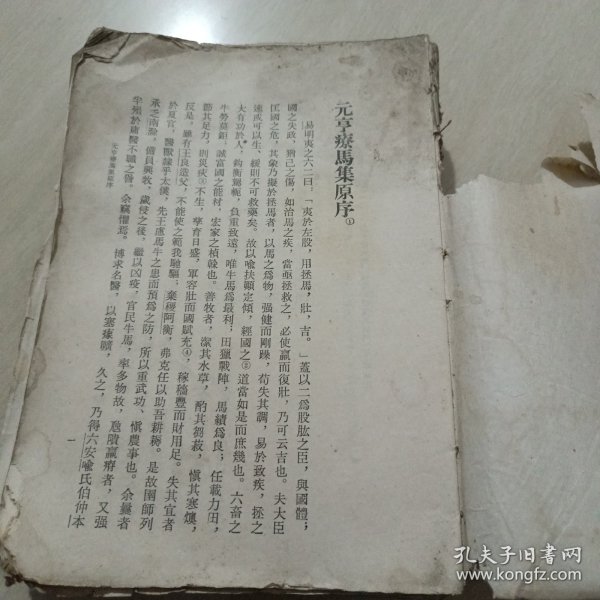 元亨療馬集原序①
易明夷之六二曰：「夷於左股，用拯馬，壯，吉。」蓋以二爲股肱之臣，與國體；
國之失政，猶己之傷，如治馬之疾，當亟拯救之，必使羸而復壯，乃可云吉也。夫大臣
匡國之危，其象乃擬於拯馬者，以馬之爲物，强健而剛躁，苟失其調，易於致疾，拯之
速或可以生，緩則不可救藥矣。故以喩扶顚定傾，經國之②道當如是而庶幾也。六畜之
大有功於人，鈎衡駕軛，負重致遠，唯牛馬爲最利；田獵戰陣，馬績爲良；任載力田，
牛勞莫鉅。誠富國之能材，宏家之楨榦也。善牧者，潔其水草，酌其芻菽，愼其寒燠，
節其足力，則災疢③不生，孳育日盛，軍容壯而國賦充④，稼穡豐而財用足。失其宜者
反是，雖有王良造父，不能使之範我馳驅；棄稷阿衡，弗克任以助吾耕耨。是故圉師列
於夏官，醫獸隸乎太僕，先王慮馬牛之患而預爲之防，所以重武功、愼農事也。余曩者
承乏南滁，備員興牧，歲侵之後，繼以凶疫，官民牛馬，率多物故，虺隤羸瘠者，又强
半殞於庸醫不職之咎。余竊懼焉。博求名醫，以塞瘝曠，久之，乃得六安喩氏伯仲本
元亨療馬集原序
一
孔夫子旧书网
www.kongfz.com